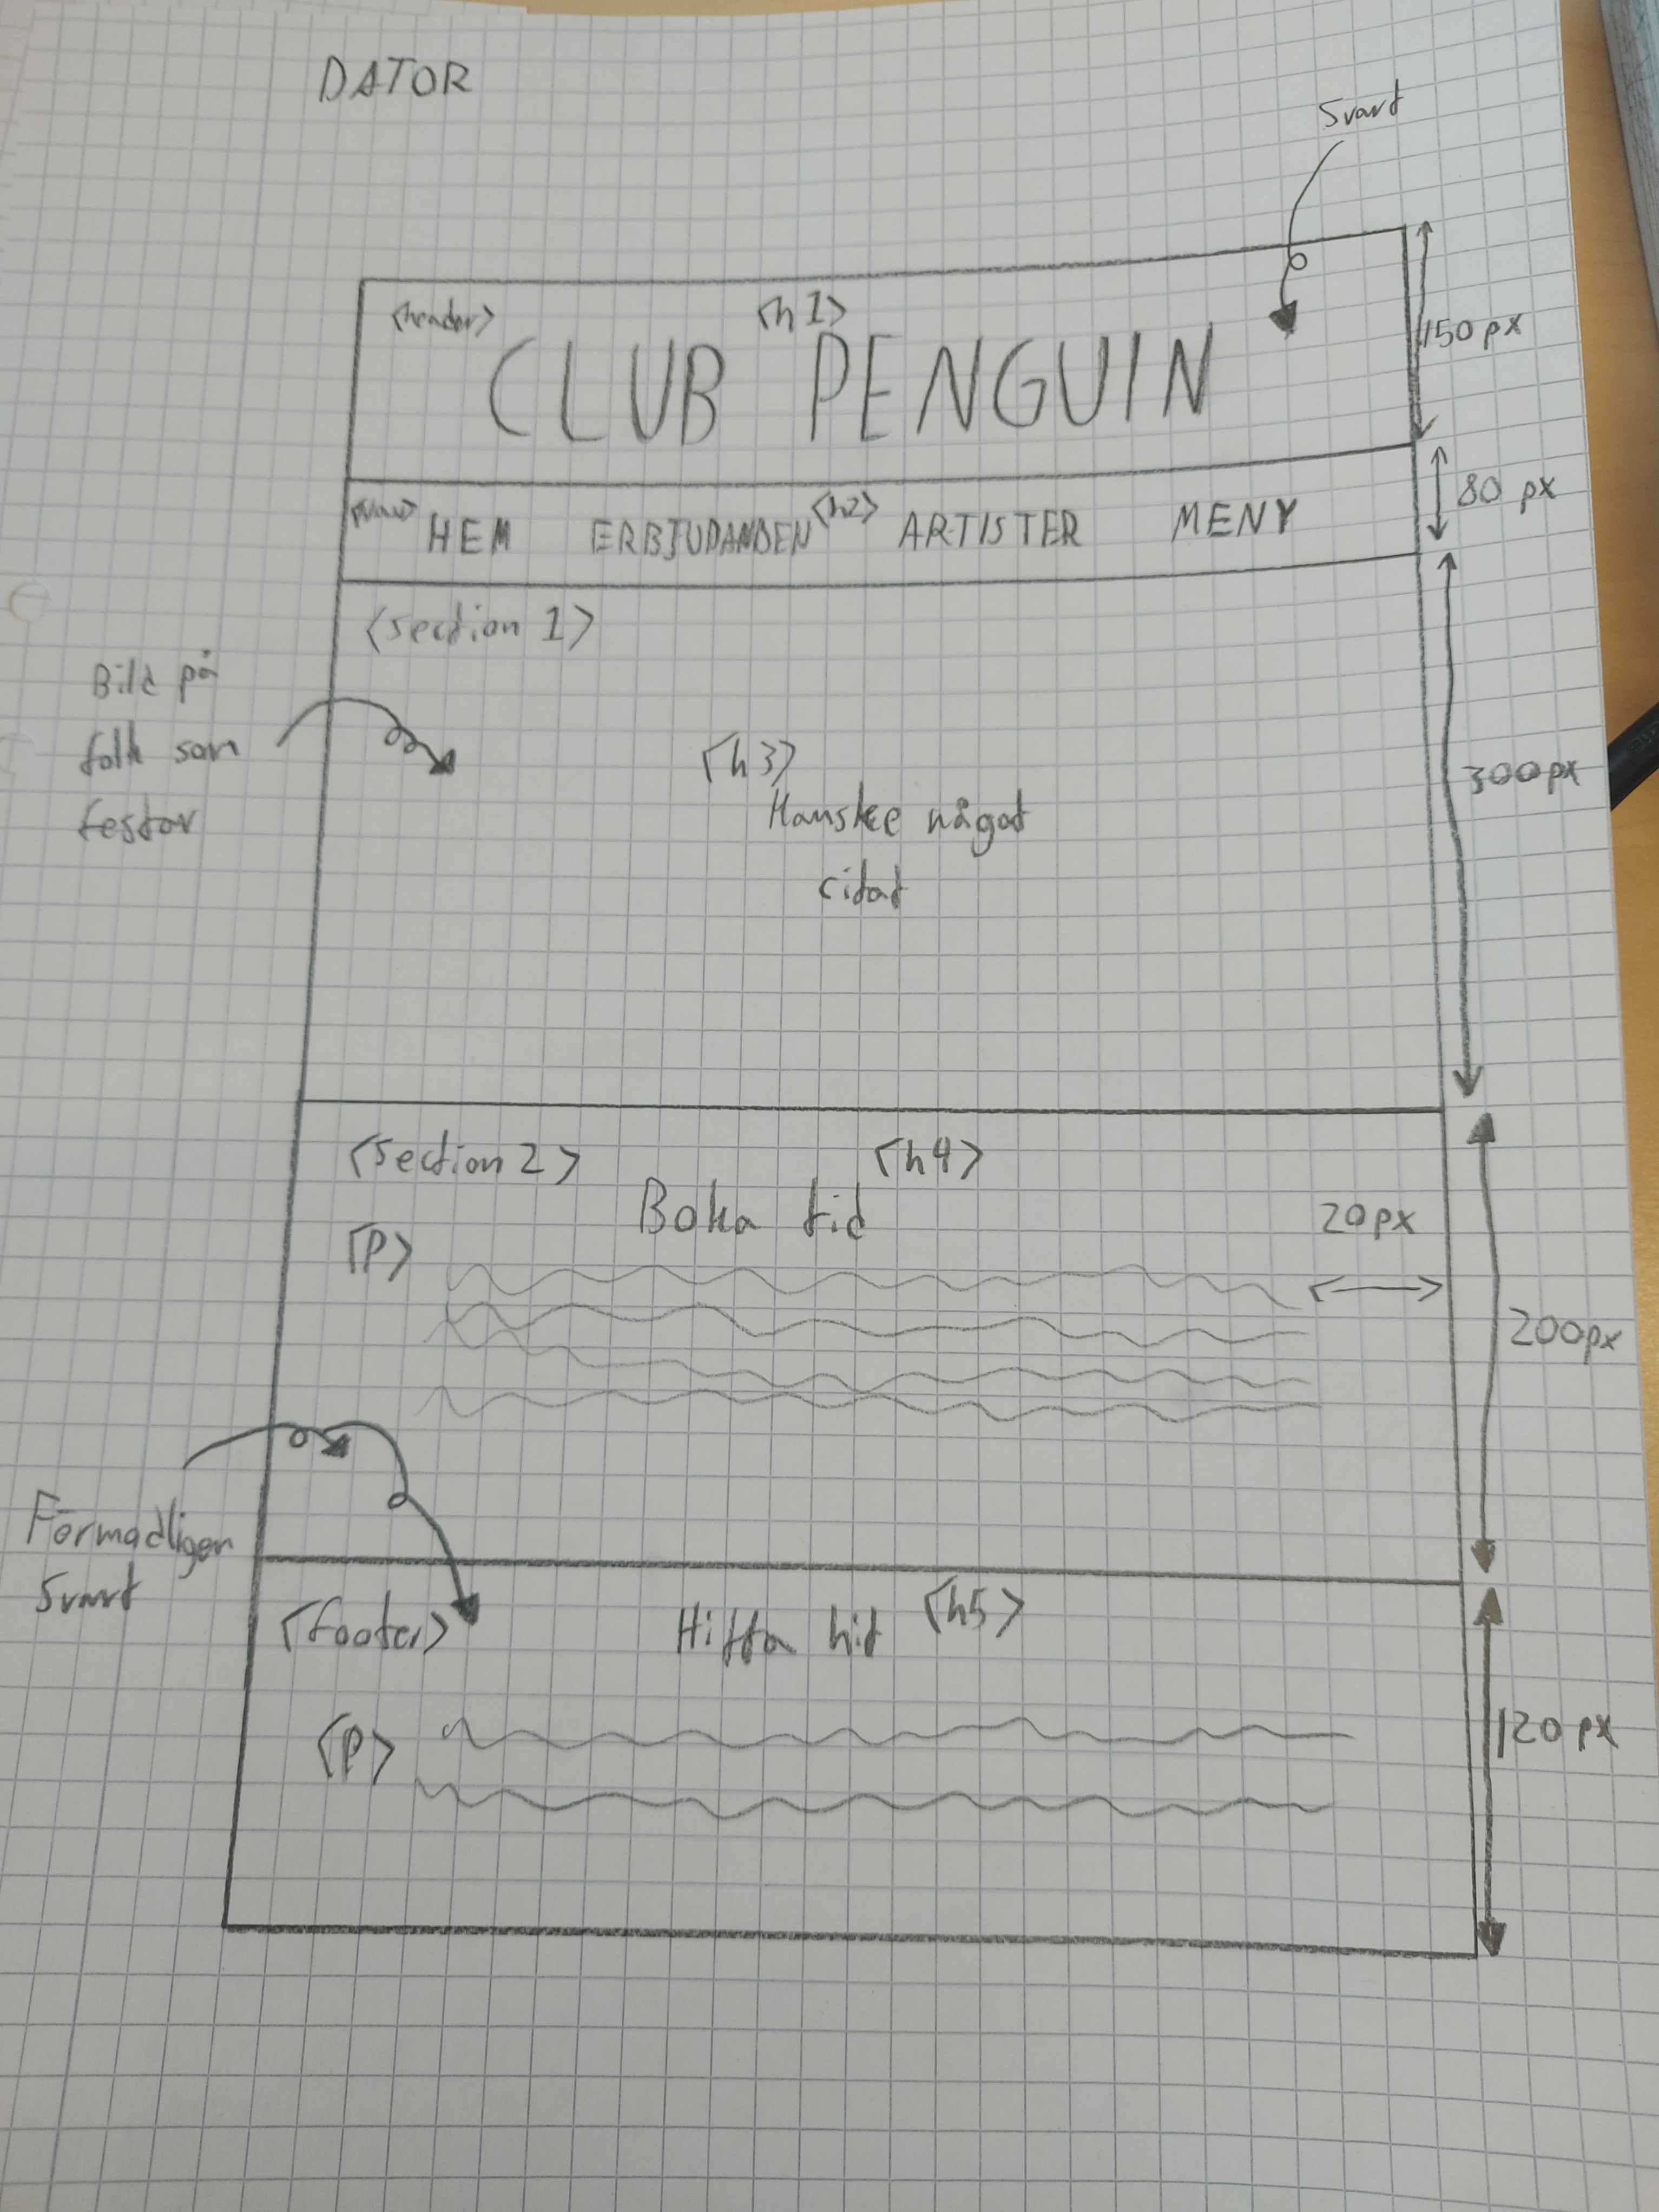 DATOR
Svart
<header>
<h1>
CLUB PENGUIN
150 px
<nav>
HEM ERBJUDANDEN <h2> ARTISTER MENY
80 px
<section 1>
Bild på
folk som
festar
<h3>
Kanske något
citat
300px
<section 2>
<h4>
Boka tid
<p>
20px
200px
Förmodligen
Svart
<footer>
Hitta hit
<h5>
<p>
120 px